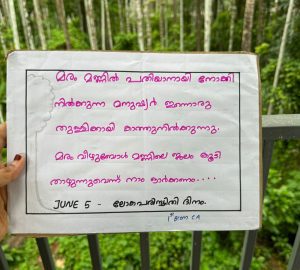 മരം മണ്ണിൽ പതിയാനായി നോക്കി
നിൽക്കുന്ന മനുഷ്യർ ഇന്നൊരു
തുള്ളിക്കായി കാത്തുനിൽക്കുന്നു.
മരം വീഴുമ്പോൾ മണ്ണിലെ ജലം കൂടി
താഴുന്നുവെന്ന് നാം ഓർക്കണം....
JUNE 5 - ലോകപരിസ്ഥിതി ദിനം.
CA